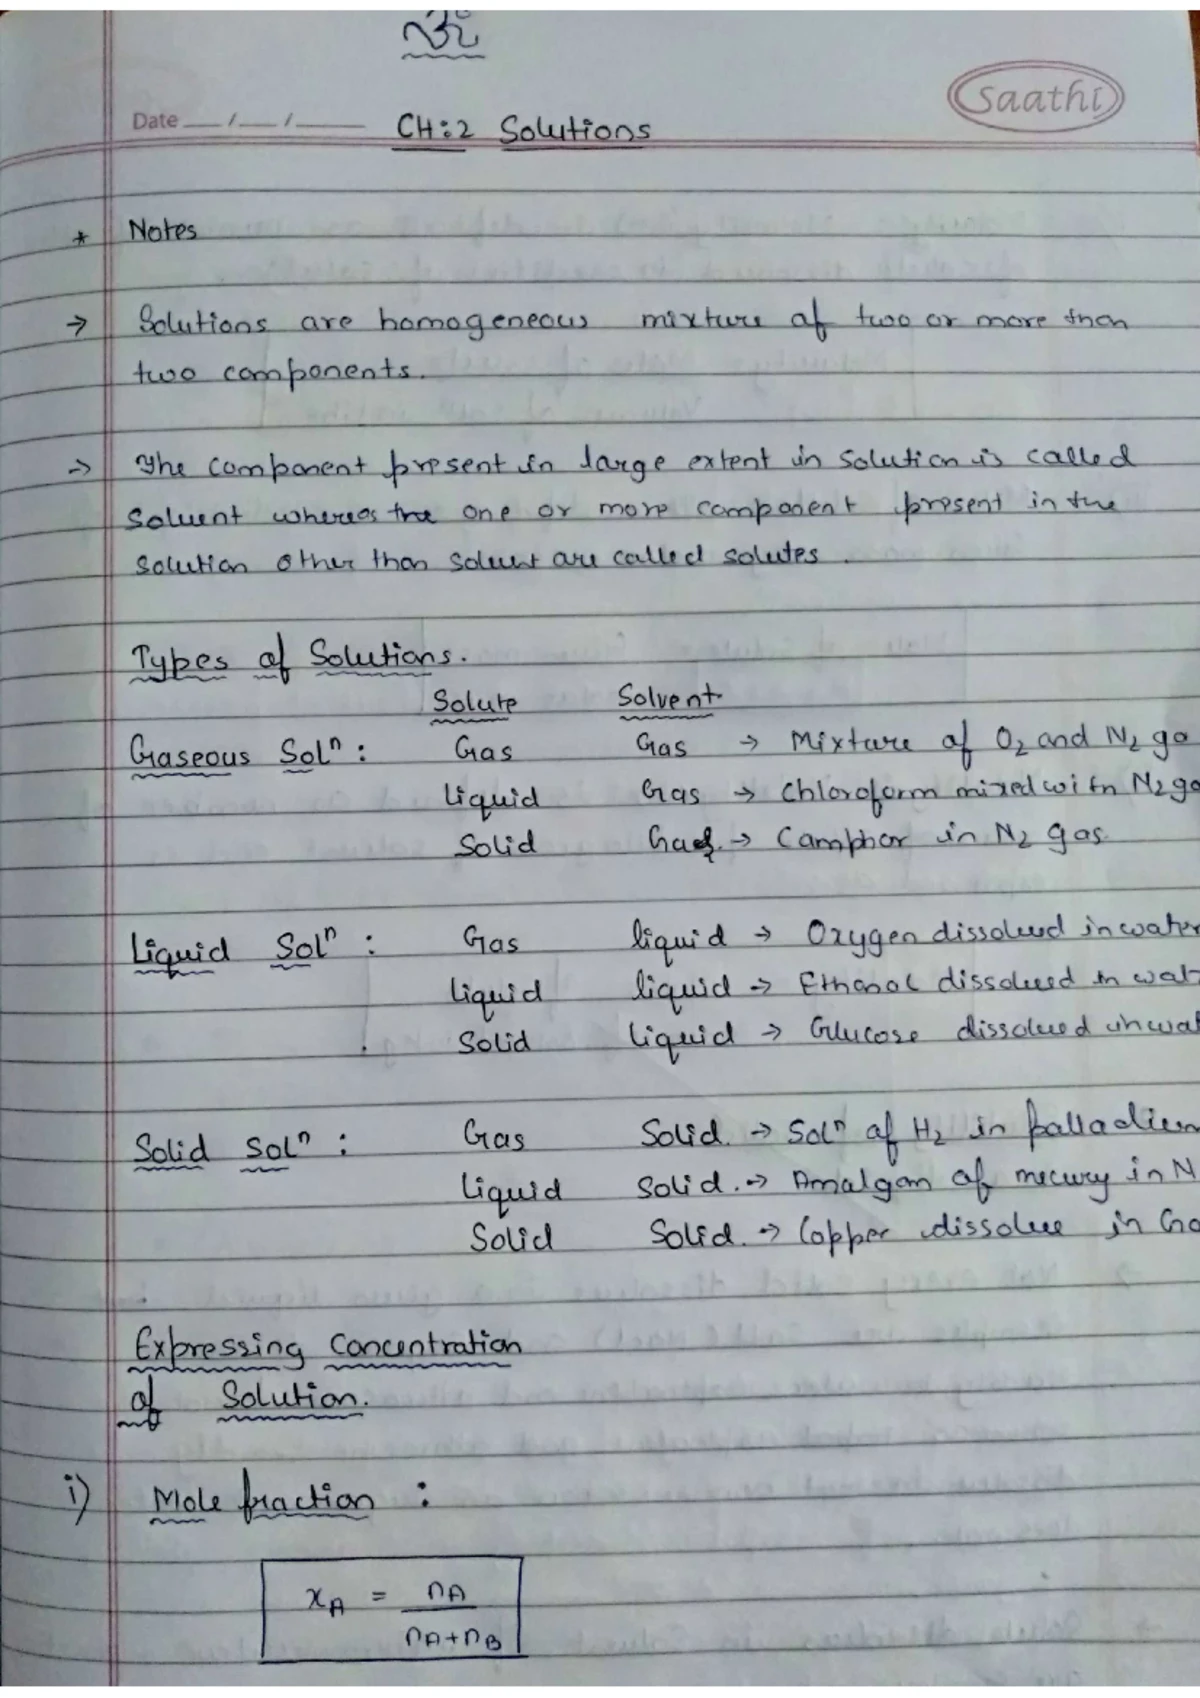 ॐ
Saathi
Date __/__/____
CH:2 Solutions
* Notes
→ Solutions are homogeneous mixture of two or more than
two components.
→ The component present in large extent in solution is called
Solvent whereas the one or more component present in the
Solution other than solvent are called solutes.
Types of Solutions.
Solute Solvent
Gaseous Solⁿ : Gas Gas → Mixture of O₂ and N₂ ga
liquid Gas → Chloroform mixed with N₂ ga
Solid Gas → Camphor in N₂ gas.
Liquid Solⁿ : Gas liquid → Oxygen dissolved in water
liquid liquid → Ethanol dissolved in wat
Solid liquid → Glucose dissolved in wat
Solid Solⁿ : Gas Solid. → Solⁿ of H₂ in palladium
Liquid Solid. → Amalgam of mercury in N
Solid Solid. → Copper dissolve in Go
Expressing Concentration
of Solution.
i) Mole fraction :
x_A = n_A / n_A + n_B